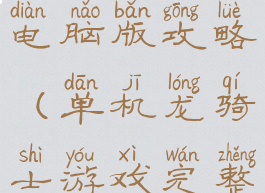 diàn nǎo bǎn gōng lüè
电脑版攻略
dān jī lóng qí
（单机龙骑
shì yóu xì wán zhěng
士游戏完整